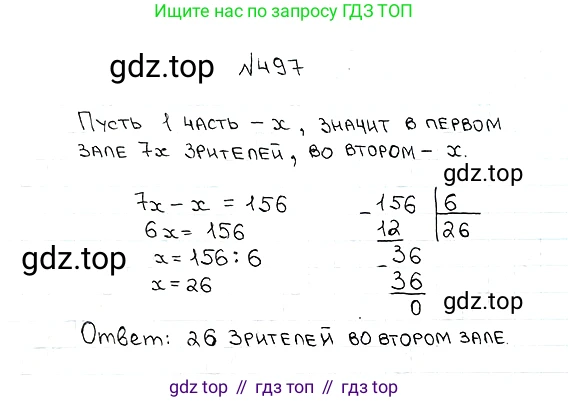 Ищите нас по запросу ГДЗ ТОП
gdz.top №497
Пусть 1 часть – x, значит в первом
зале 7x зрителей, во втором – x.
gdz.top
7x – x = 156
6x = 156
x = 156 : 6
x = 26
gdz.top
– 156 | 6
12 | 26
– 36
36
0
gdz.top
Ответ: 26 зрителей во втором зале.
gdz.top // гдз топ // гдз.топ